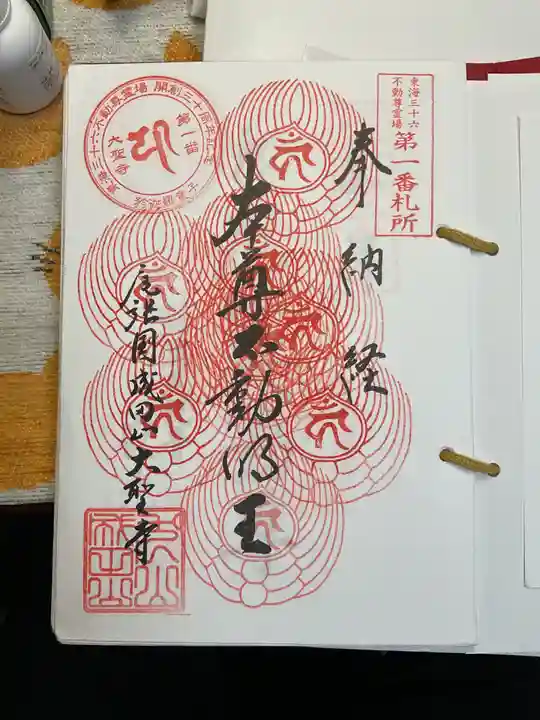 東海三十六
不動尊霊場
第一番札所
奉納経
本尊不動明王
尾張国成田山大聖寺
東海三十六不動尊霊場 開創三十周年記念
第一番
大聖寺